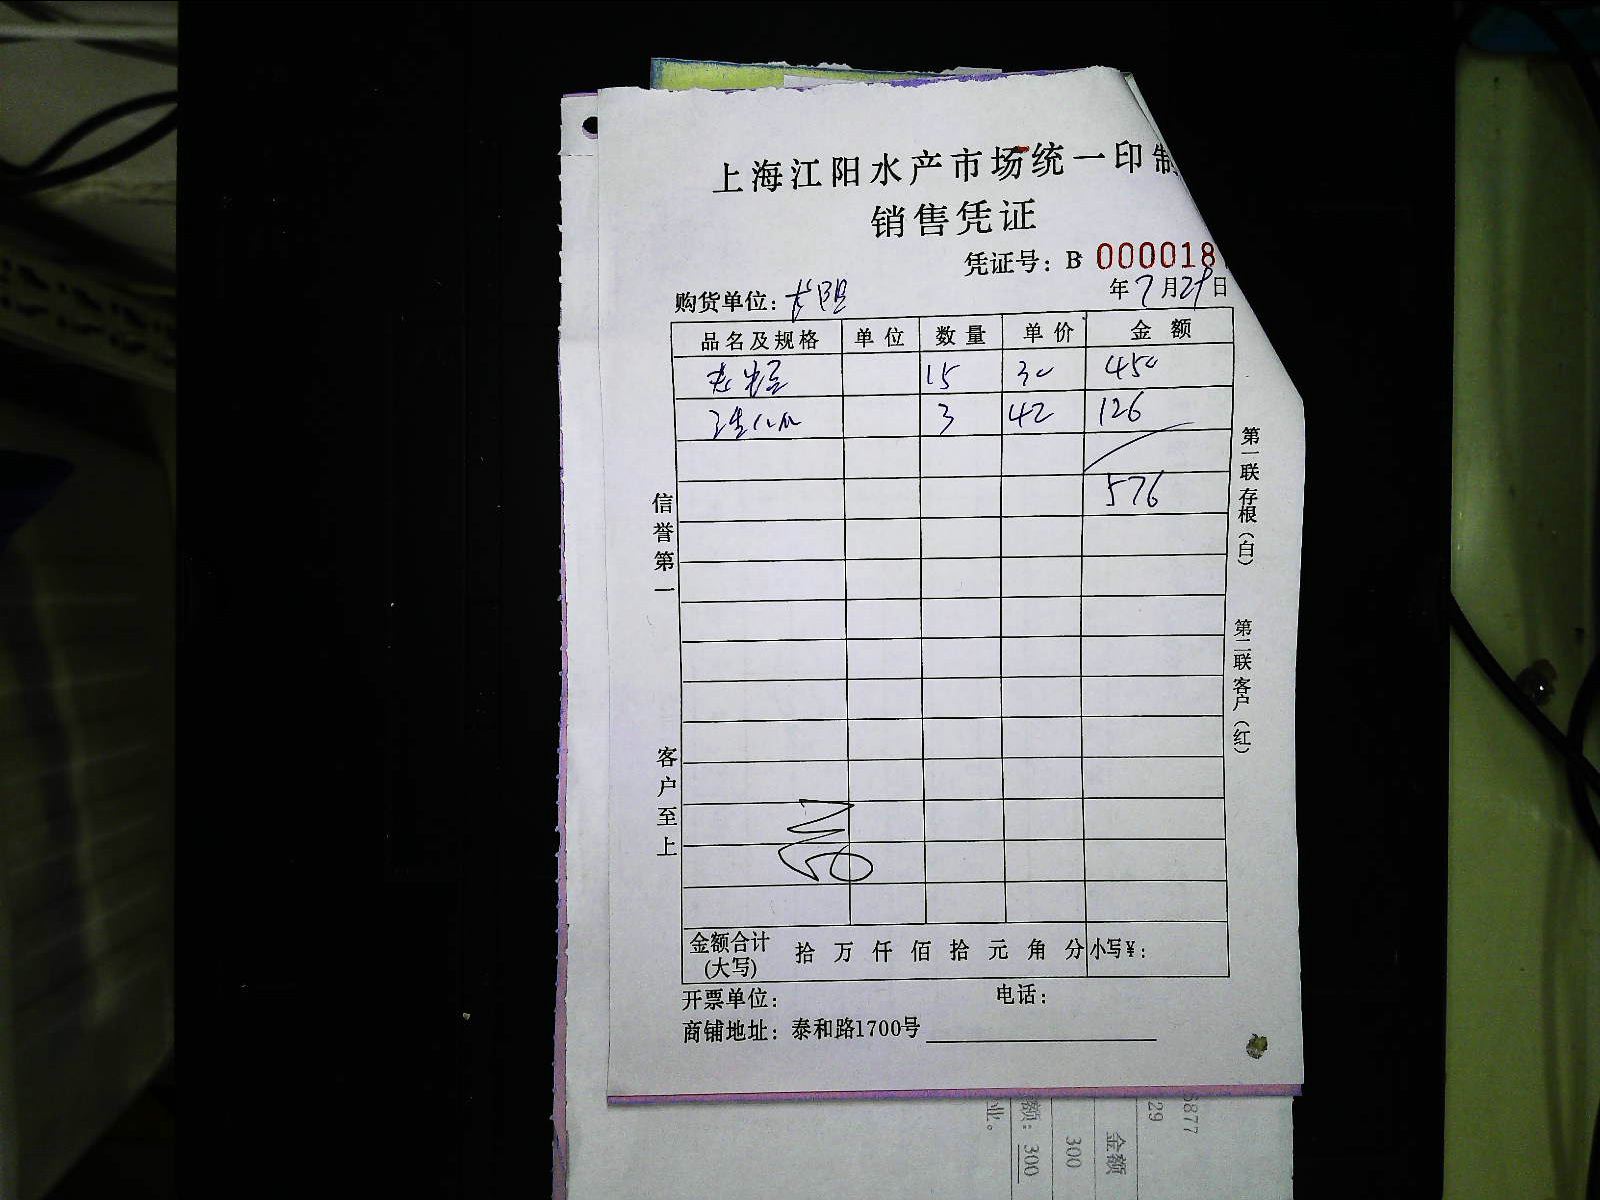 上海江阳水产市场统一印制
销售凭证
凭证号：B 000018
年7月29日
购货单位：
品名及规格 单位 数量 单价 金额
15 30 450
3 42 126
576
信誉第一
客户至上
第一联存根（白）
第二联客户（红）
金额合计（大写） 拾 万 仟 佰 拾 元 角 分 小写¥：
开票单位： 电话：
商铺地址：泰和路1700号
6877
29
金额
300
额：300
业。